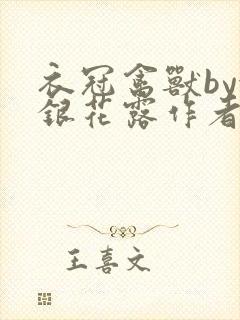 衣冠禽獸by
銀花露作者
王喜文